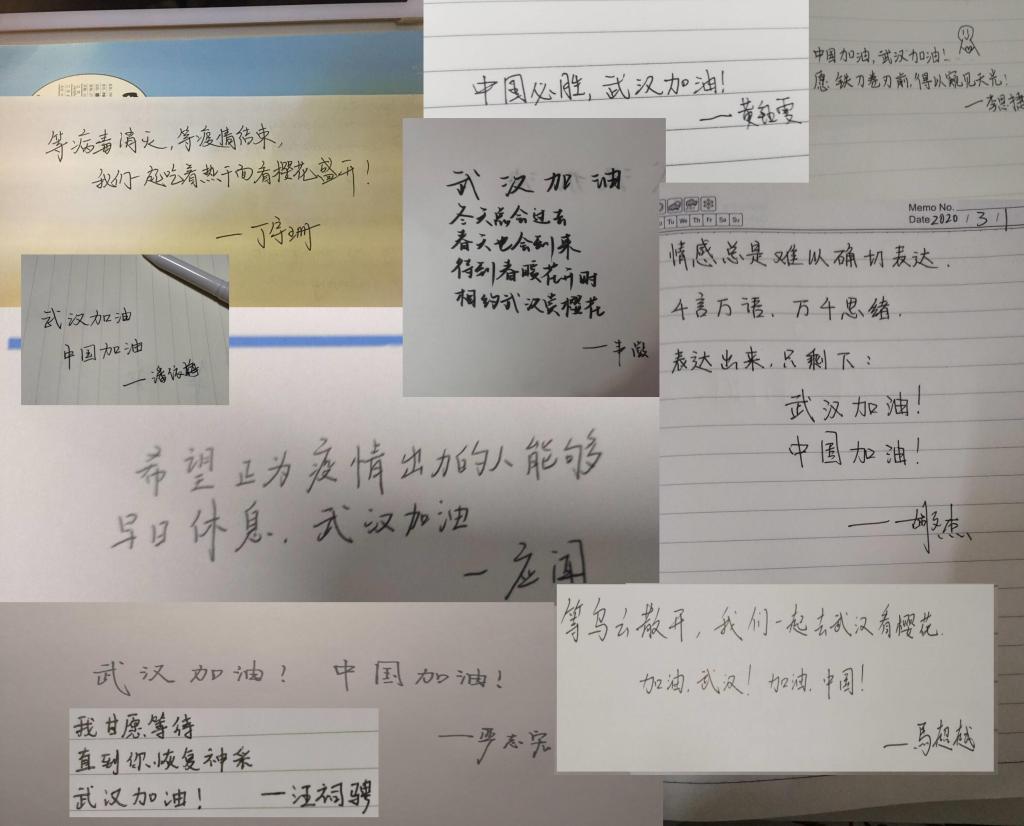 中国必胜,武汉加油!
—黄钰雯
中国加油,武汉加油!
愿铁刀卷刃前,得以窥见天光!
—李思穗
等病毒消灭,等疫情结束,
我们一起吃着热干面看樱花盛开!
—丁宇珊
武汉加油
冬天总会过去
春天也会到来
待到春暖花开时
相约武汉赏樱花
—丰微
武汉加油
中国加油
—潘依梅
Memo No.
Tu We Th Fr Sa Su
Date 2020 / 3 / 1
情感总是难以确切表达.
千言万语,万千思绪.
表达出来,只剩下:
武汉加油!
中国加油!
希望正为疫情出力的人能够
早日休息.武汉加油
—应闻
等乌云散开,我们一起去武汉看樱花.
加油.武汉!加油.中国!
—馬超越
武汉加油!中国加油!
—严志宏
我甘愿等待
直到你恢复神采
武汉加油! —汪祠骋